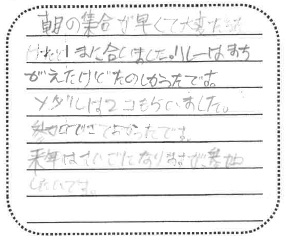 朝の集合が早くて大変だった
けれどまに合いました。リレーはまち
がえたけどたのしかったです。
メダルは2コもらいました。
参加できてよかったです。
来年はさいごになりますが、参加
したいです。